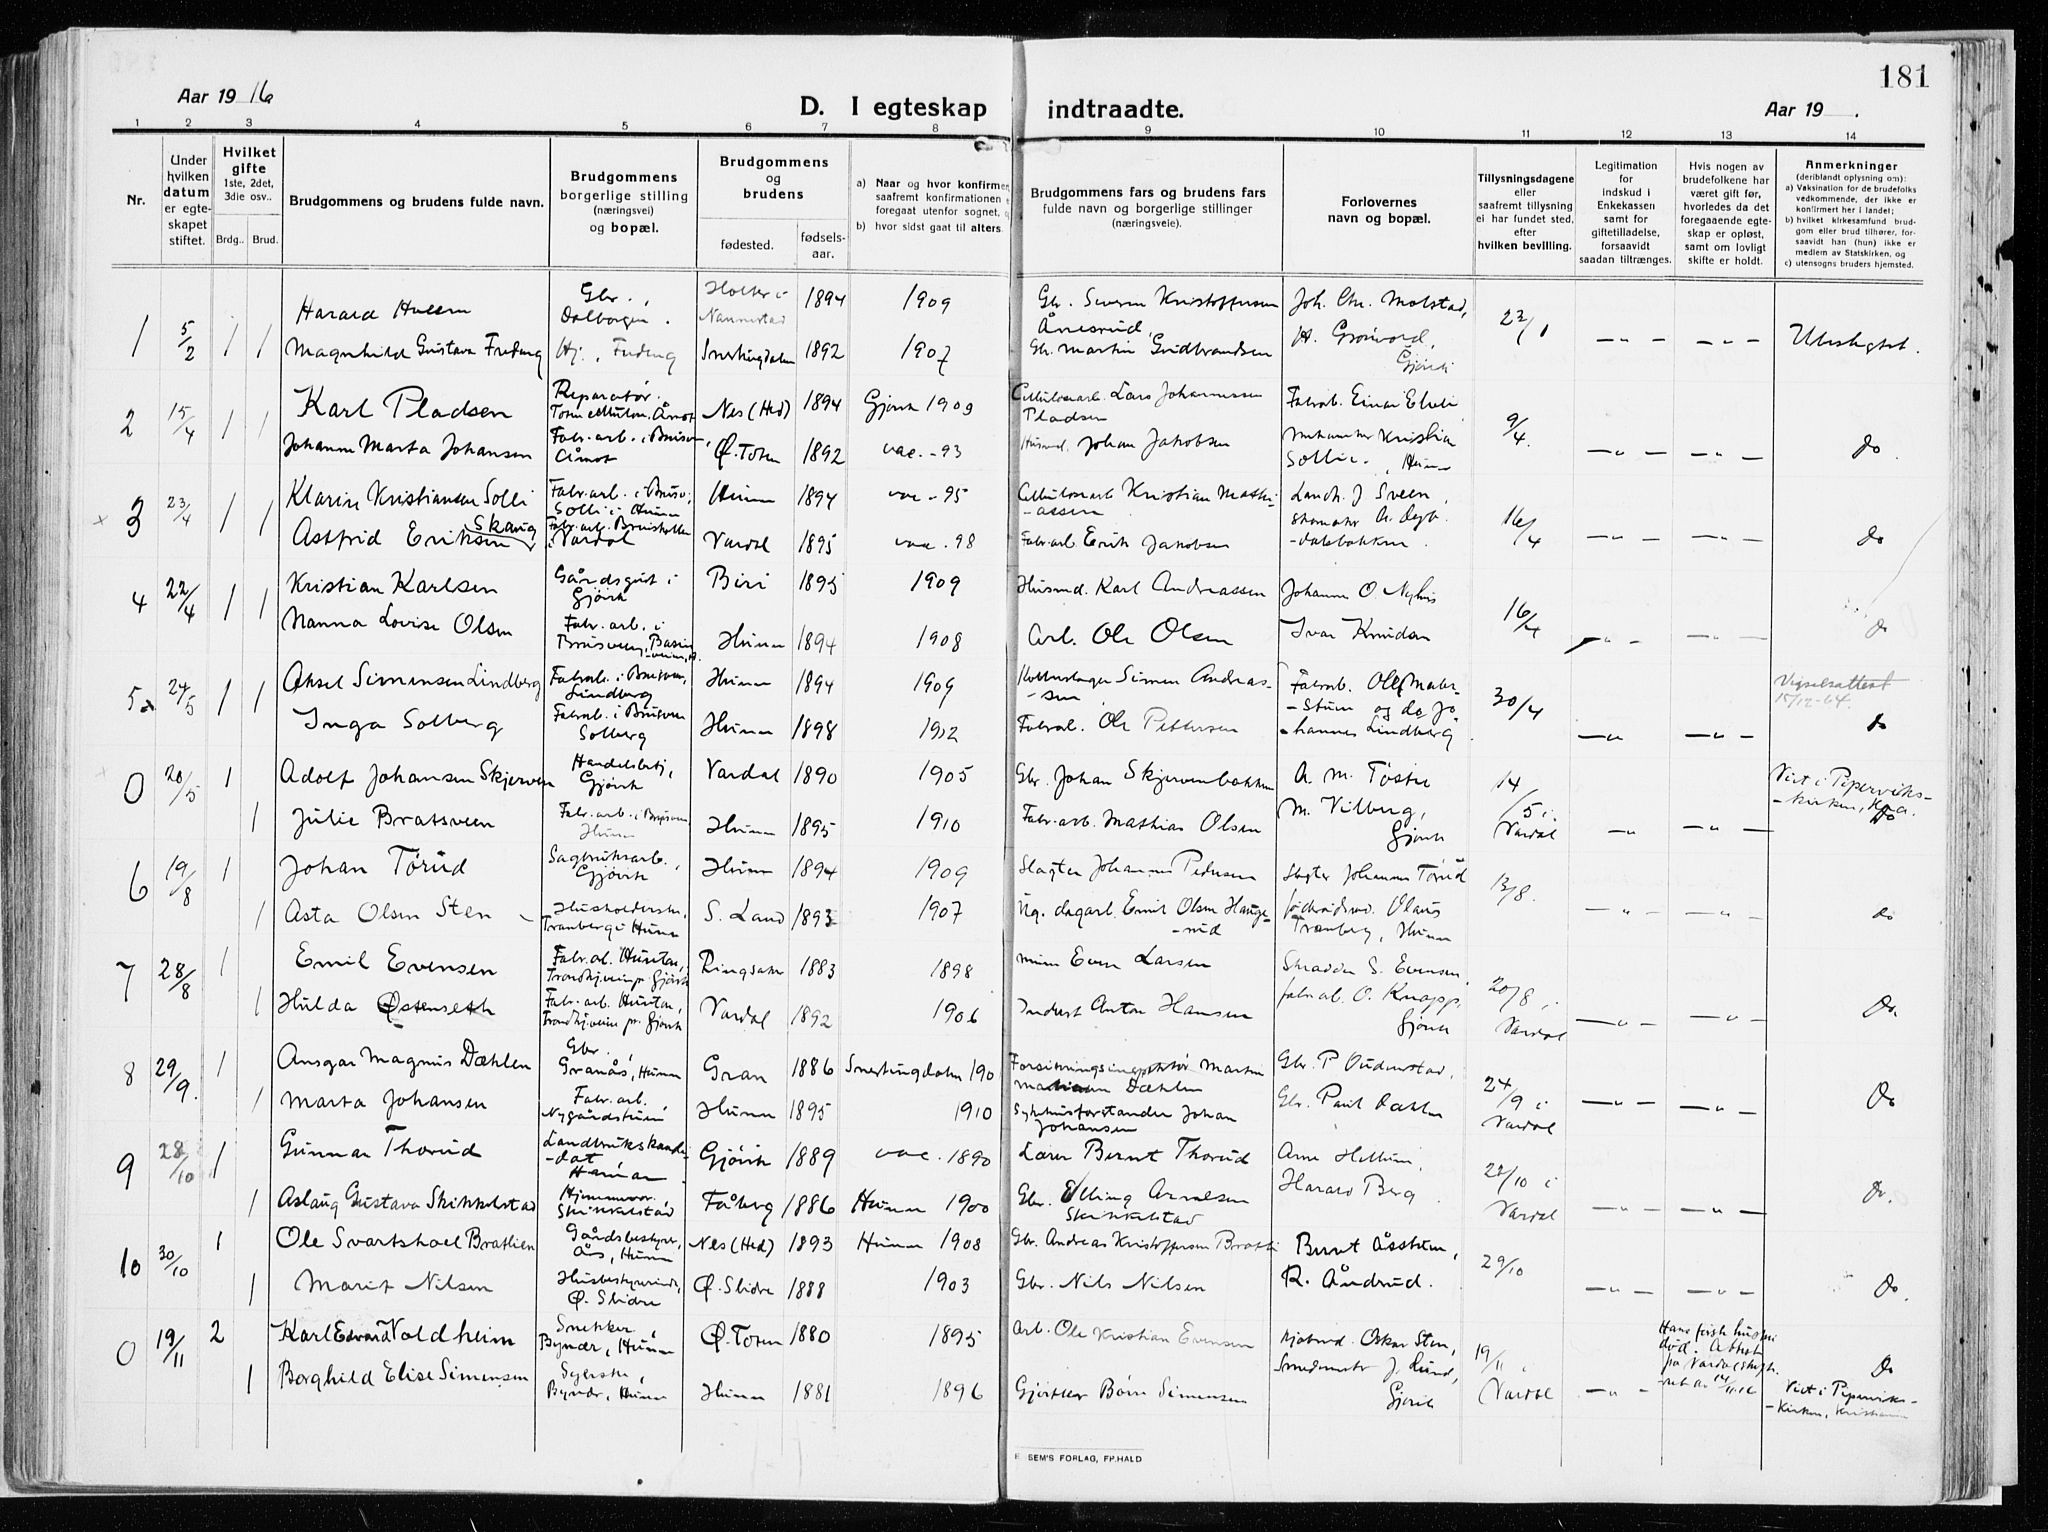 181
Aar 1916
D. I egteskap indtraadte.
Aar 19 .
1 2 3 4 5 6 7 8 9 10 11 12 13 14
Nr.
Under hvilken datum er egte-skapet stiftet.
Hvilket gifte
1ste, 2det, 3die osv..
Brdg.. Brud.
Brudgommens og brudens fulde navn.
Brudgommens borgerlige stilling (næringsvei) og bopæl.
Brudgommens og brudens
fødested. fødsels-aar.
a) Naar og hvor konfirmer
saafremt konfirmationen
foregaat utenfor sognet,
b) hvor sidst gaat til alters.
Brudgommens fars og brudens fars
fulde navn og borgerlige stillinger
(næringsveie).
Forlovernes
navn og bopæl.
Tillysningsdagene
eller
saafremt tillysning
ei har fundet sted,
efter
hvilken bevilling.
Legitimation
for
indskud i
Enkekassen
samt for
giftetilladelse,
forsaavidt
saadan tiltrænges.
Hvis nogen av
brudefolkene har
været gift før,
hvorledes da det
foregaaende egte-
skap er opløst,
samt om lovlig
skifte er holdt.
Anmerkninger
(deriblandt oplysning om):
a) Vaksination for de brudefolks
vedkommende, der ikke er
konfirmert her i landet;
b) hvilket kirkesamfund brud-
gom eller brud tilhører, for-
saavidt han (hun) ikke er
medlem av Statskirken, og
c) utensogns bruders hjemsted.
1 5/2 1 1 Harald Hulsen Gbr., Dalborgen. Holter i Nannestad 1894 1909 Gbr. Severin Kristoffersen Ånesrud, Joh. Chr. Molstad, 23/1 Ubeslegtet.
Magnhild Gustava Fredung Hj., Fredung Snertingdalen 1892 1907 Gbr. Martin Gudbrandsen H. Grønvold, Gjøvik
2 15/4 1 1 Karl Pladsen Reparatør, Toten cellulose. Åmot Nes (Hed) 1894 Gjøvik 1909 Cellulosearb. Lars Johannessen Pladsen Fabrarb. Einar Elvli 9/4. do.
Johanne Marta Johansen Fabr. arb. i Brusv., Åmot Ø. Toten 1892 vac. -93 Husmd. Johan Jakobsen Kristian Sollie, Hunn
3 23/4 1 1 Klarin Kristiansen Solli Fabr. arb. i Brusv., Solli i Hunn Hunn 1894 vac -95 Cellulosearb Kristian Mathi-assen J. Sveen, 16/4 do
Astrid Eriksen Skaug Fabr. arb. i Vardal Vardal 1895 vac. 98 Fabr. arb. Erik Jakobsen
4 22/4 1 1 Kristian Karlsen Gårdsgut i Gjøvik Biri 1895 1909 Husmd. Karl Andreassen Johannes O. Nyhus 16/4 do
Nanna Lovise Olsen Fabr. arb. i Brusveen, Hunn 1894 1908 Arb. Ole Olsen Ivar Knudsen
5 24/5 1 1 Aksel Simensen Lindberg Fabrarb. i Brusveen, Lindberg Hunn 1894 1909 Simen Andreas-sen Fabrarb. Ole Mælum-Stuen og do Jo-hannes Lindberg. 30/4 Vigselsattest 15/12-64. do
Inga Solberg Fabrarb. i Brusveen Solberg Hunn 1898 1912 Fabrarb. Ole Pettersen
0 20/5 1 Adolf Johansen Skjerven Handelsbetj., Gjøvik Vardal 1890 1905 Gbr. Johan Skjervenbakken A. M. Tøstie 14/5 i Vardal Viet i Piperviks-kirken, Kra. do
1 Julie Bratsveen Fabr. arb. i Brusveen Hunn Hunn 1895 1910 Fabr. arb. Mathias Olsen M. Vilberg, Gjøvik
6 19/8 1 Johan Tørud Sagbruksarb., Gjøvik Hunn 1894 1909 Slagter Johannes Pedersen Slagter Johannes Tørud 13/8. do
1 Asta Olsen Sten Husholderske, Tranberg i Hunn S. Land 1893 1907 dagarb. Emil Olsen Hauge-rud Olaus Tranberg, Hunn
7 28/8 1 Emil Evensen Fabr. arb. Hunton, Trondhj.veien pr. Gjøvik Ringsaker 1883 1898 Even Larsen Skrædder S. Evensen 20/8 i Vardal Do.
1 Hulda Østenseth Fabr. arb. Hunton, Trondhj.veien pr. Gjøvik Vardal 1892 1906 Indust Anton Hansen fabrarb. O. Knapp, Gjøvik
8 29/9. 1 Ansgar Magnus Dæhlen Gbr., Granås, Hunn Gran 1886 Snertingdalen 190 Forsikringsinspektør Martin Dæhlen Gbr. P. Oudenstad, 24/9 i Vardal Do
1 Marta Johansen Fabr. arb. Nygårdstuen Hunn 1895 1910 Sykehusforstander Johan Johansen Gbr. Paul Dahlen
9 28/10 1 Gunnar Thorud Landbrukskandi-dat Hamar Gjøvik 1889 vac. 1890 Lærer Bernt Thorud Arne Hellum, 22/10 i Vardal Do.
1 Aslaug Gustava Skikkelstad Hjemmevær., Skikkelstad Fåberg 1886 Hunn 1900 Gbr. Elling Arnesen Skikkelstad Harald Berg.
10 30/10 1 Ole Svartshoel Bratlien Gårdsbestyrer, Ås, Hunn Nes (Hed) 1893 Hunn 1908 Gbr. Andreas Kristoffersen Bratli Bernt Åsstuen, 29/10 Do.
1 Marit Nilsen Husbestyrerinde, Ø. Slidre Ø. Slidre 1888 1903 Gbr. Nils Nilsen R. Åndrud.
0 19/11 2 Karl Edvard Voldheim Snekker, Bynær, Hunn Ø. Toten 1880 1895 Arb. Ole Kristian Evensen Oskar Sten, 19/11 i Vardal Hans første hustru død. Attest fra Vardal skifteret av 14/11-16 Do
1 Borghild Elise Simensen Syerske, Bynær, Hunn Hunn 1881 1896 Gjørtler Børre Simensen Smedmester J. Lund, Gjøvik Viet i Piperviks-kirken, Kristiania
E. SEM'S FORLAG, FR.HALD